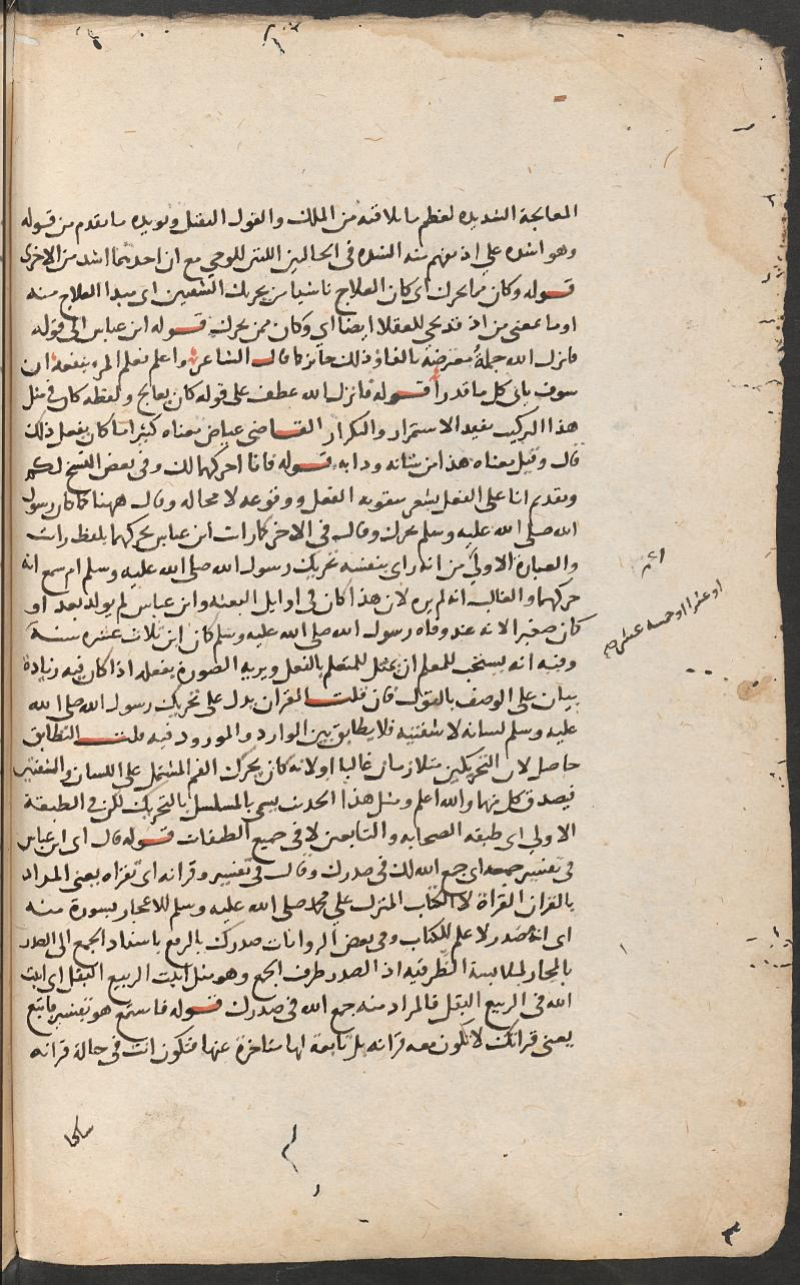 المعالجة الشديده لعظم ما يلاقيه من الملك والقول الثقيل ويويده ما تقدم من قوله
وهو اشده علي اذ يفهم منه الشده في الحالتين اللتين للوحي مع ان احديهما اشد من الاخرى
قوله وكان مما يحرك اي كان العلاج ناشيا من يحريك الشفتين اي مبدا العلاج منه
او ما بمعنى من اذ قد تجي للعقلا ايضا اي وكان ممن يحرك قوله ابن عباس الى قوله
فانزل الله جملة معترضة بالفاء وذلك جائز كما قال الشاعر واعلم فعلم المرء ينفعه ان
سوف ياتي كل ما قدرا قوله فانزل الله عطف على قوله كان يعالج ولفظه كان في مثل
هذا التركيب يفيد الاستمرار والتكرار القاضي عياض معناه كثيرا ما كان يفعل ذلك
قال وقيل معناه هذا من شانه ودابه قوله فانا احركهما لك وفي بعض النسخ لكم
وتقديم انا على الفعل يشعر بتقويه الفعل ووقوعه لا محاله وقال ههنا كما كان رسول
الله صلى الله عليه وسلم يحرك وقال في الاخر كما رات ابن عباس يحركهما بلفظ رات
والعبارة الاولى من انه راى بنفسه تحريك رسول الله صلى الله عليه وسلم ام سمع انه
حركهما والغالب انه لم يره لان هذا كان في اوايل البعثه وابن عباس لم يولد بعد او
كان صغيرا لانه عند وفاه رسول الله صلى الله عليه وسلم كان ابن ثلاث عشره سنة
او عشرا او خمسه عشر صح
وفيه انه يستحب للمعلم ان يمثل للمتعلم بالفعل ويريه الصورة بفعله اذا كان فيه زيادة
بيان على الوصف بالقول فان قلت القران يدل على تحريك رسول الله صلى الله
عليه وسلم لسانه لا شفتيه فلا يطابق بين الوارد والمورود فيه قلت التطابق
حاصل لان التحريكين متلازمان غالبا او لانه كان يحرك الفم المشتمل على اللسان والشفتين
فيصدق كل منهما والله اعلم ومثل هذا الحديث يسمى بالمسلسل بالتحريك لكن في الطبقة
الاولى اي طبقه الصحابه والتابعين لا في جميع الطبقات قوله قال اي ابن عباس
في تفسير جمعه اي جمع الله لك في صدرك وقال في تفسير وقرانه اي تقراه يعني المراد
بالقران القراة لا الكتاب المنزل على محمد صلى الله عليه وسلم للاعجاز بسورة منه
اي انه مصدر لا علم للكتاب وفي بعض الروايات صدرك بالرفع باسناد الجمع الى الصدر
بالمجاز لملابسة الظرفيه اذ الصدر ظرف الجمع وهو مثل انبت الربيع البقل اي انبت
الله في الربيع البقل فالمراد منه جمع الله في صدرك قوله فاستمع هو تفسير فاتبع
يعني قراتك لا تكون معه قرانه بل تابعة لها متاخرة عنها فتكون انت في حالة قرانه
ساكتا